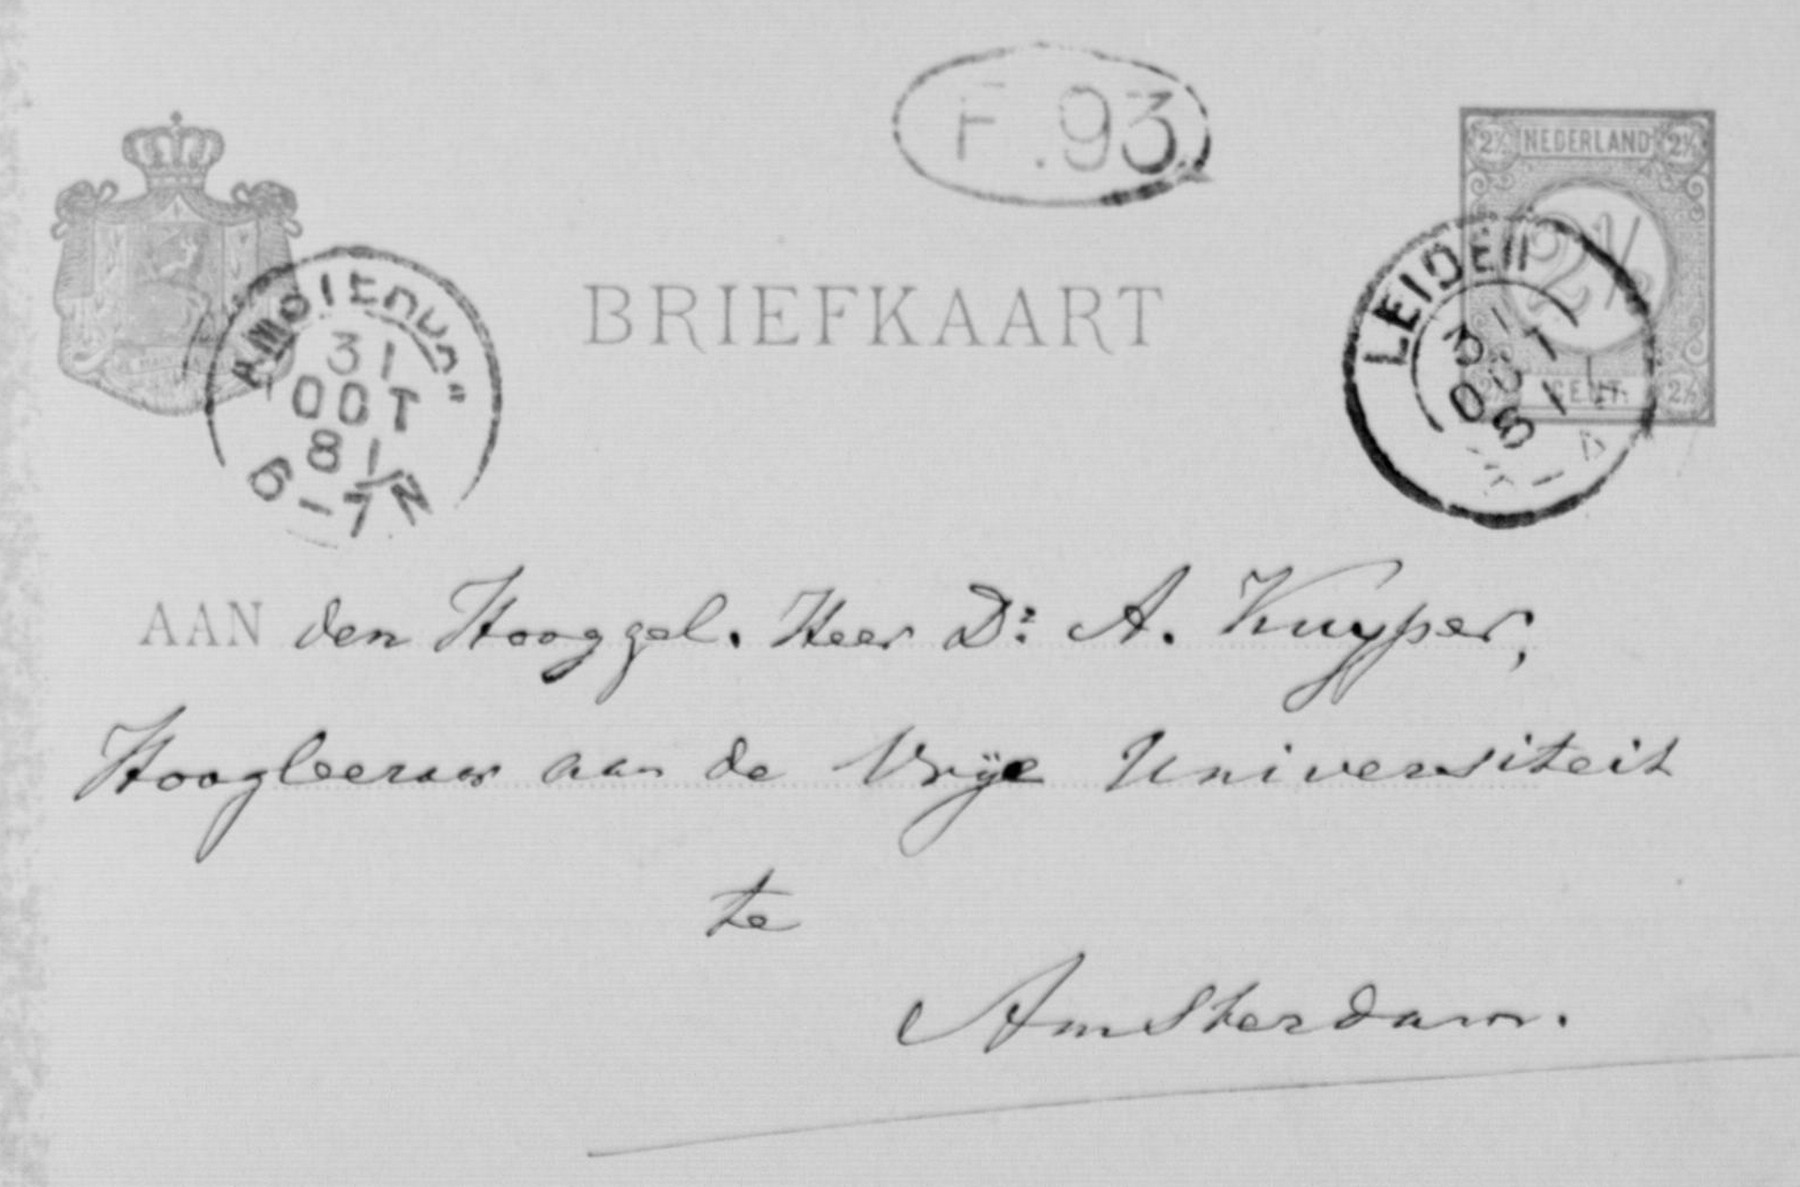 F.93
2½ NEDERLAND 2½
2½
2½ CENT 2½
BRIEFKAART
AMSTERDAM
31
OCT
81
6-7N
LEIDEN
31
OCT
81
AAN den Hooggel. Heer Dr. A. Kuyper,
Hoogleeraar aan de Vrije Universiteit
te
Amsterdam.